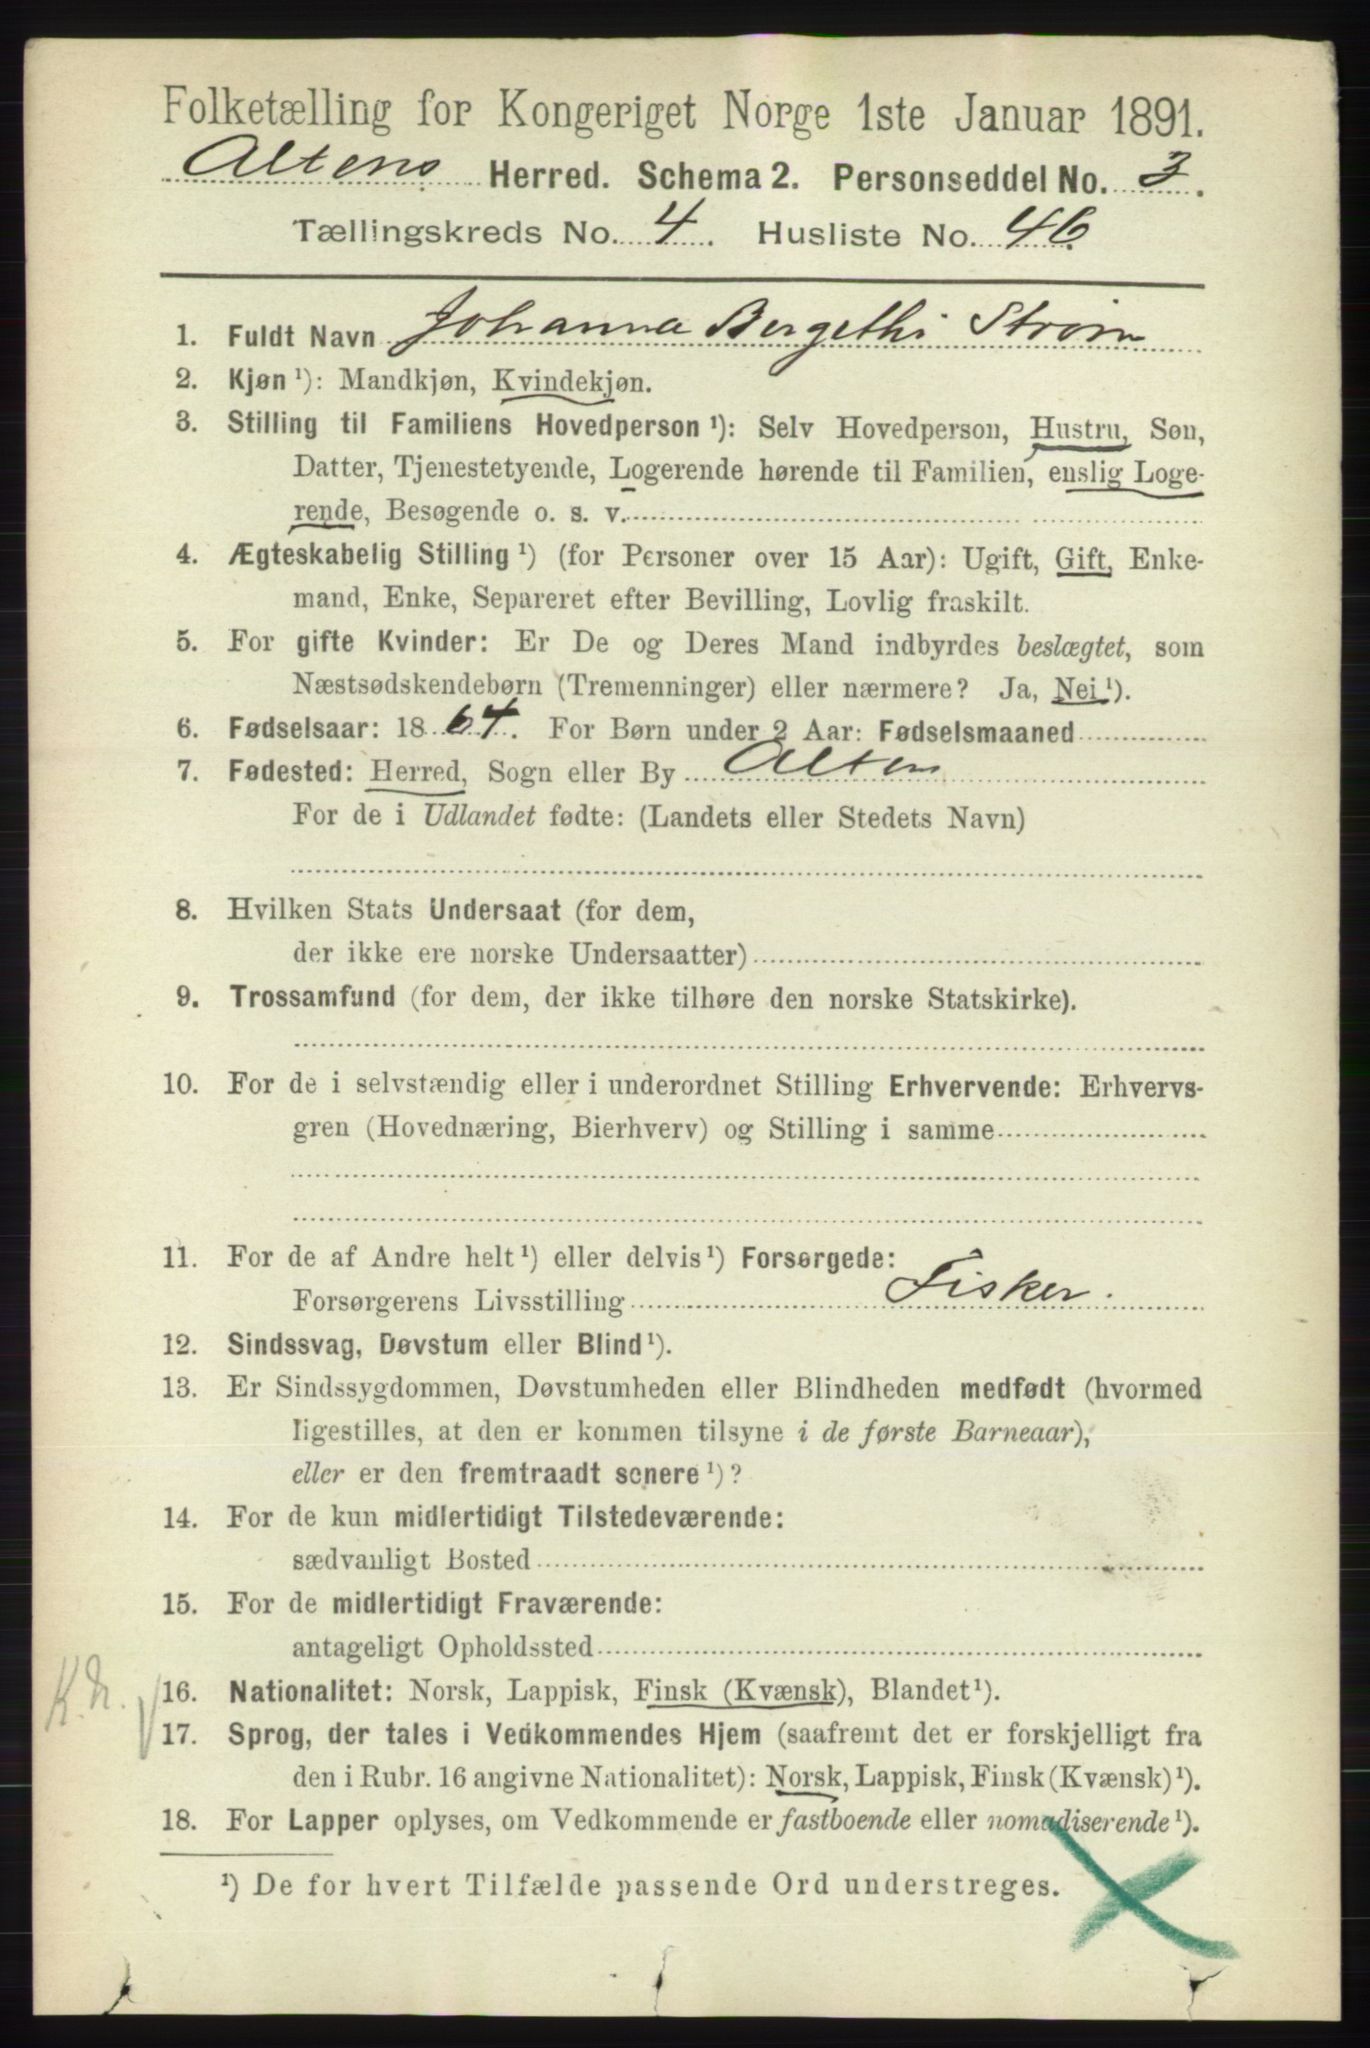 Folketælling for Kongeriget Norge 1ste Januar 1891.
Altens Herred. Schema 2. Personseddel No. 3.
Tællingskreds No. 4. Husliste No. 46.
1. Fuldt Navn Johanna Bergethe Strøm
2. Kjøn ¹): Mandkjøn, Kvindekjøn.
3. Stilling til Familiens Hovedperson ¹): Selv Hovedperson, Hustru, Søn,
Datter, Tjenestetyende, Logerende hørende til Familien, enslig Loge-
rende, Besøgende o. s. v.
4. Ægteskabelig Stilling ¹) (for Personer over 15 Aar): Ugift, Gift, Enke-
mand, Enke, Separeret efter Bevilling, Lovlig fraskilt.
5. For gifte Kvinder: Er De og Deres Mand indbyrdes beslægtet, som
Næstsødskendebørn (Tremenninger) eller nærmere? Ja, Nei ¹).
6. Fødselsaar: 1864. For Børn under 2 Aar: Fødselsmaaned
7. Fødested: Herred, Sogn eller By Alten
For de i Udlandet fødte: (Landets eller Stedets Navn)
8. Hvilken Stats Undersaat (for dem,
der ikke ere norske Undersaatter)
9. Trossamfund (for dem, der ikke tilhøre den norske Statskirke).
10. For de i selvstændig eller i underordnet Stilling Erhvervende: Erhvervs-
gren (Hovednæring, Bierhverv) og Stilling i samme
11. For de af Andre helt ¹) eller delvis ¹) Forsørgede:
Forsørgerens Livsstilling Fisker.
12. Sindssvag, Døvstum eller Blind ¹).
13. Er Sindssygdommen, Døvstumheden eller Blindheden medfødt (hvormed
ligestilles, at den er kommen tilsyne i de første Barneaar),
eller er den fremtraadt senere ¹)?
14. For de kun midlertidigt Tilstedeværende:
sædvanligt Bosted
15. For de midlertidigt Fraværende:
antageligt Opholdssted
K.N. 16. Nationalitet: Norsk, Lappisk, Finsk (Kvænsk), Blandet ¹).
17. Sprog, der tales i Vedkommendes Hjem (saafremt det er forskjelligt fra
den i Rubr. 16 angivne Nationalitet): Norsk, Lappisk, Finsk (Kvænsk) ¹).
18. For Lapper oplyses, om Vedkommende er fastboende eller nomadiserende ¹).
¹) De for hvert Tilfælde passende Ord understreges.